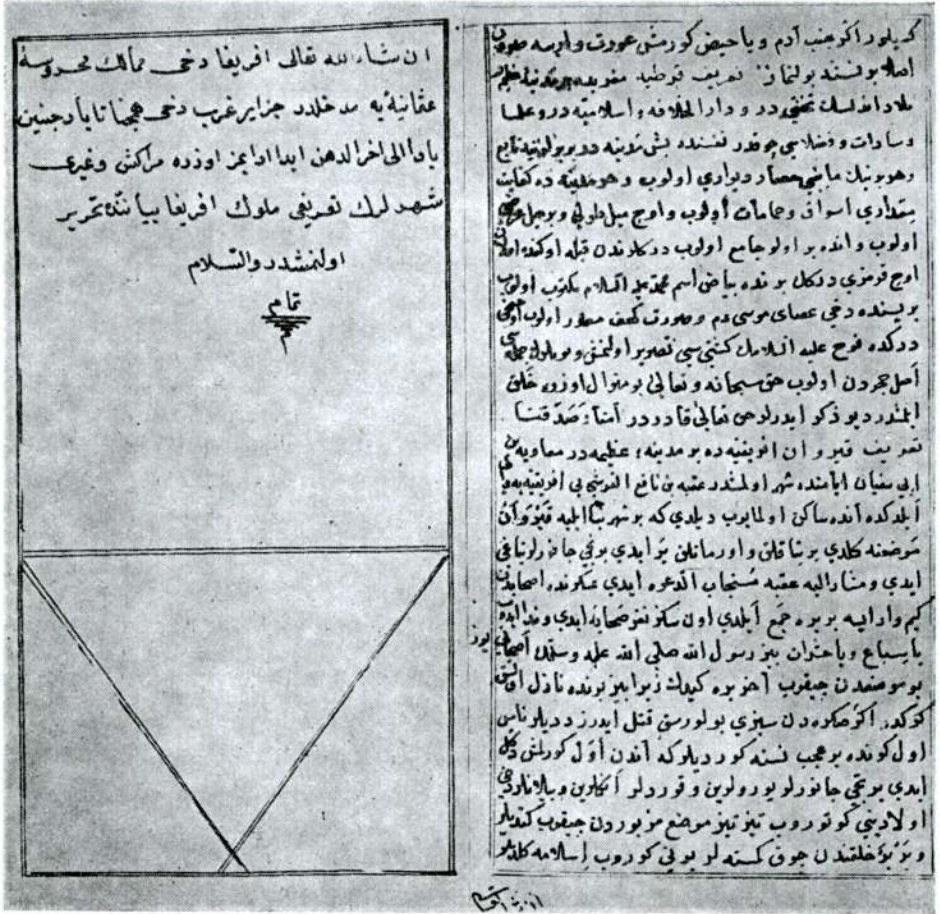 كلور اكر جنب آدم و يا حيض كورمش عورت وارسه
اصلا بو لنماز تعريف قرطبه
بلاد اندلسك تختى در و دار الخلافه و اسلاميه در و علما
و سادات و فضلاسى چوقدر نفسنده بش مدينه در بربرلرينه تابع
و هر برينك مابينى حصار ديوارى اولوب و هر مدينه ده كفايت
مقدارى اسواق و حمامات اولوب و اوچ ميل طولى و بر ميل عرضى
اولوب و انده بر اولو جامع اولوب ديركلرندن قبله اوكنده
اوچ قرمزى ديركك برنده بياض اسم محمد عليه السلام مكتوب اولوب
بريسنده دخى عصاى موسى و صورت كهف اولوب
ديركده نوح عليه السلامك تصوير اولنمش
اصل حجردن اولوب حق سبحانه و تعالى بو منوال اوزره خلق
ايلمشدر ديو ذكر ايدرلر حق تعالى قادردر آمنا و صدقنا
تعريف قيروان افريقيه ده بر مدينه عظيمه در معاويه بن
ابى سفيان ايامنده شهر اولمشدر عقبه بن نافع القرشى افريقيه يه
ايلدكده آنده ساكن اولمايوب ديلدى كه بر شهر بنا ايليه قيروان
موضعنه كلدى بر بتاقلق و اورمانلق ير ايدى يرتجى جانورلر ياتاغى
ايدى و مشار اليه عقبه مستجاب الدعوه ايدى عسكرنده اصحابدن
كيم وار ايسه بر يره جمع ايلدى اون سكز نفر صحابه ايدى و ندا ايدوب
يا سباع و يا حشران بيز رسول الله صلى الله عليه و سلمك اصحابى يوز
بو موضعدن چيقوب آخر يره كيدك زيرا بيز بونده نازل
كركدر اكر صكره دن سيزى بولورسق قتل ايدرز ديديلر ناس
اول كونده بر عجب نسنه كورديلر كه آندن اول كورلمش دكل
ايدى يرتجى جانورلر يورولرين و قوردلر انكلرين و ييلانلر دخى
اولادينى كوتوروب تيز تيز موضع مزبوردن چيقوب كتديلر
و بربر خلقندن چوق كمسنه لر بونى كوروب اسلامه كلديلر
ان شاء الله تعالى افريقا دخى ممالك محروسه
عثمانيه يه مدخلدر جزاير غرب دخى
الى اخر الدهر اوزره مراكش و غيرى
شهرلرك تعريفى ملوك افريقا بياننده تحرير
اولنمشدر والسلام
تمام
م